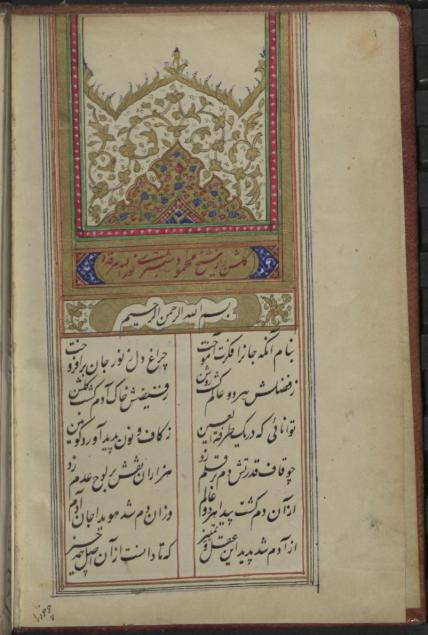 گلشن راز شیخ محمود شبستری نور الله مرقده
بسم الله الرحمن الرحیم
بنام آنکه جانرا فکرت آموخت چراغ دل ز نور جان برافروخت
ز فضلش هر دو عالم گشت روشن ز فیضش خاک آدم گشت گلشن
توانائی که در یک طرفة العین ز کاف و نون پدید آورد کونین
چو قاف قدرتش دم بر قلم زد هزاران نقش بر لوح عدم زد
از آن دم گشت پیدا هر دو عالم وزان دم شد هویدا جان آدم
از آدم شد پدید این عقل و تمییز که تا دانست از آن اصل همه چیز